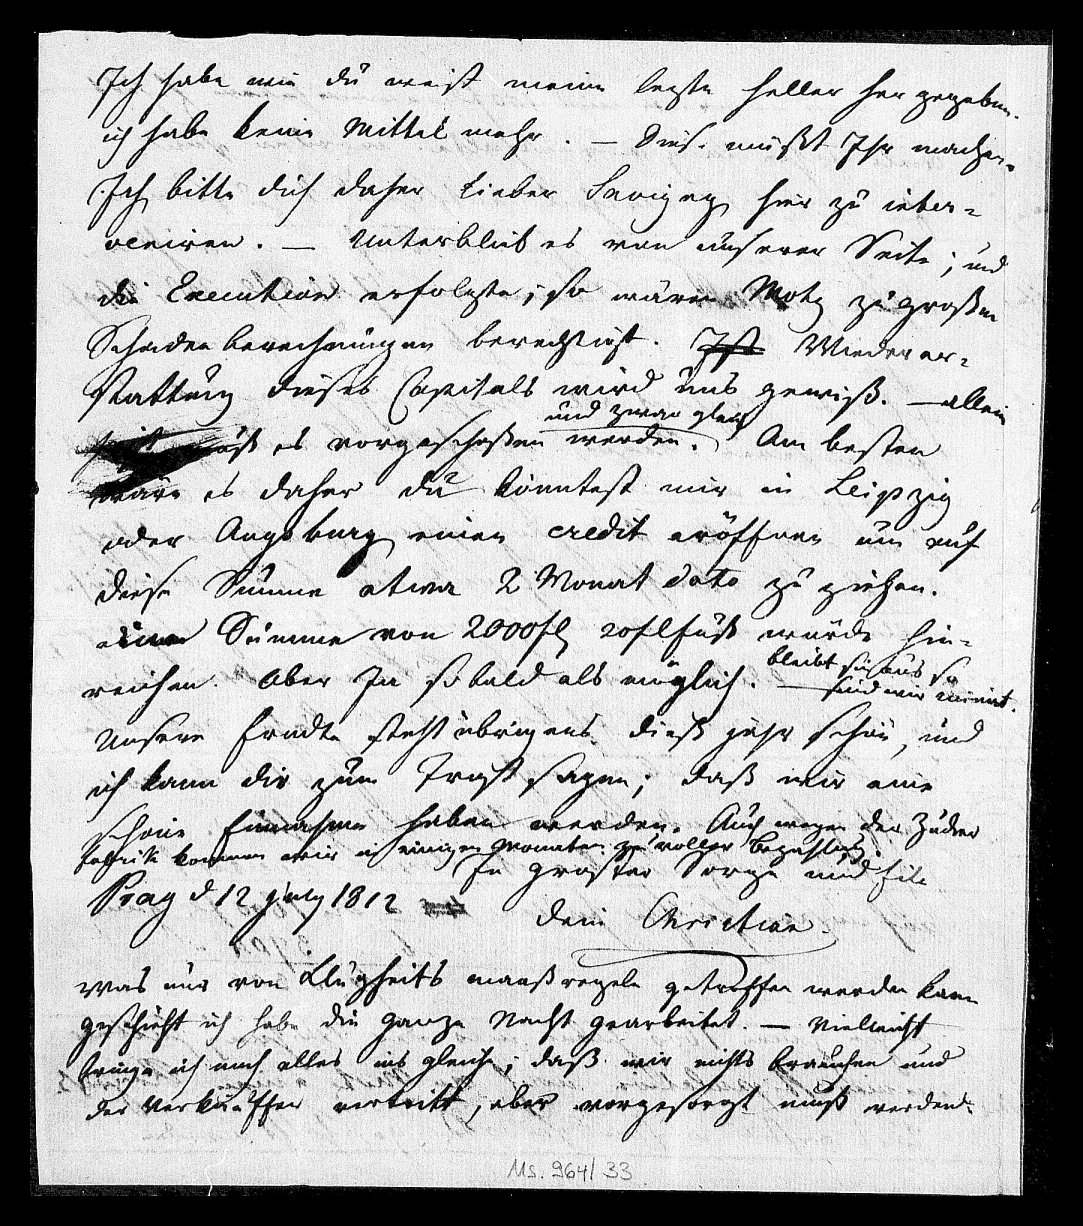 Ich habe wie du weist meine lezte Heller her gegeben.
ich habe keine Mittel mehr. — Dies. müßt Ihr machen.
Ich bitte dich daher Lieber Savigny hier zu inter-
veniren. — Unterblieb es von unserer Seite; und
die Execution erfolgte; so wären Motz zu großen
Schadenberechnungen berechtigt. Ist Wiederer-
stattung dieses Capitals wird uns gewiß. — allein
und zwar gleich
muß es vorgeschoßen werden. Am besten
wäre es daher du könntest mir in Leipzig
oder Augsburg einen credit eröffnen um auf
diese Summe etwa 2 Monat dato zu ziehen.
eine Summe von 2000 fl 20 fl fuß würde hin-
reichen. Aber Ja sobald als möglich. — bleibt sie aus so
sind wir ruinirt.
Unsere Erndte steht übrigens dieß jahr schön, und
ich kann dir zum Trost sagen; daß wir eine
schöne Einnahme haben werden. Auch wegen der Zucker
fabrik kommen wir in einigen Monaten zu voller Bezahlung
In groster Sorge und Eile
Prag d 12 july 1812
dein Christian.
Was nur von Klugheits maaßregeln getroffen werden kann
geschieht ich habe die ganze Nacht gearbeitet. — Vielleicht
bringe ich noch alles ins gleiche; daß wir nichts brauchen und
der Verkäuffer vertritt, aber vorgesorgt muß werden.
Ms. 964/33